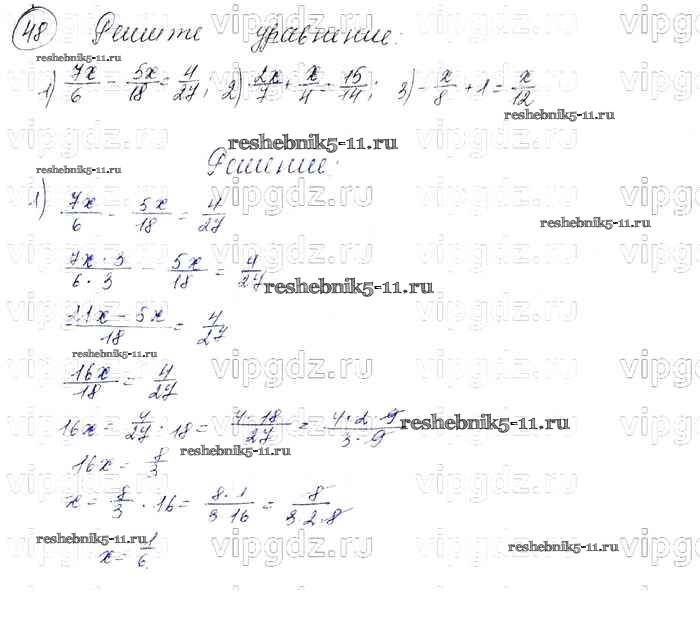 48 Решите уравнение:
reshebnik5-11.ru
1) 7x/6 - 5x/18 = 4/27; 2) 2x/7 + x/4 = 15/14; 3) - x/8 + 1 = x/12
reshebnik5-11.ru
reshebnik5-11.ru
Решение:
reshebnik5-11.ru
1) 7x/6 - 5x/18 = 4/27
reshebnik5-11.ru
7x · 3/6 · 3 - 5x/18 = 4/27
reshebnik5-11.ru
21x - 5x/18 = 4/27
reshebnik5-11.ru
16x/18 = 4/27
16x = 4/27 · 18 = 4 · 18/27 = 4 · 2 · 9/3 · 9
reshebnik5-11.ru
16x = 8/3
reshebnik5-11.ru
x = 8/3 · 16 = 8 · 1/3 · 16 = 8/3 · 2 · 8
x = 1/6
reshebnik5-11.ru
reshebnik5-11.ru
vipgdz.ru